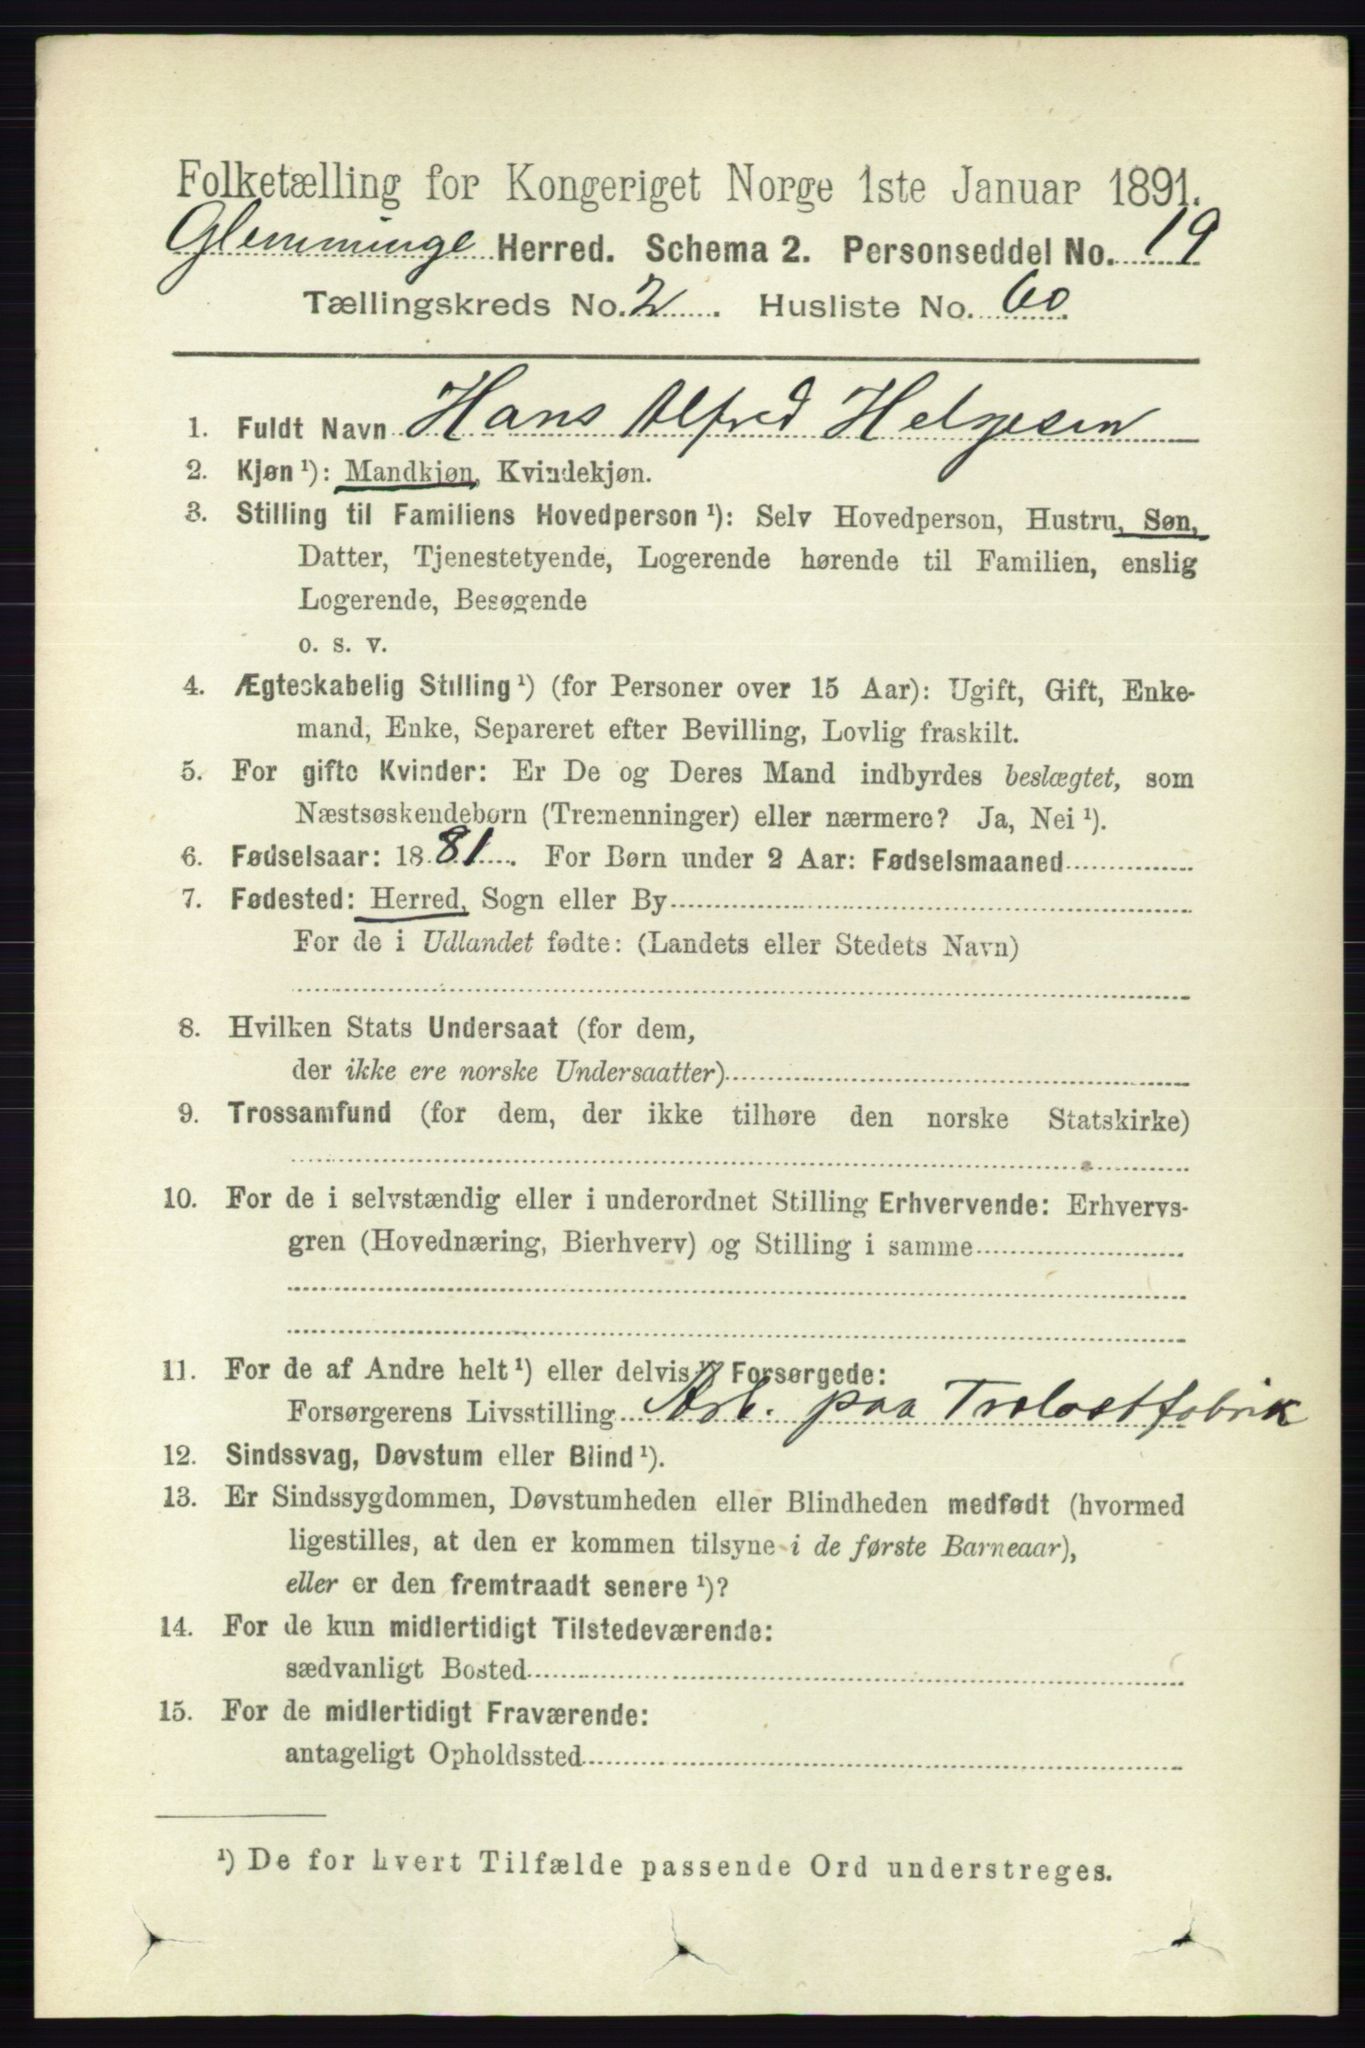 Folketælling for Kongeriget Norge 1ste Januar 1891.
Glemminge Herred. Schema 2. Personseddel No. 19
Tællingskreds No. 2. Husliste No. 60.
1. Fuldt Navn Hans Alfred Helgesen
2. Kjøn ¹): Mandkjøn, Kvindekjøn.
3. Stilling til Familiens Hovedperson ¹): Selv Hovedperson, Hustru, Søn,
Datter, Tjenestetyende, Logerende hørende til Familien, enslig
Logerende, Besøgende
o. s. v.
4. Ægteskabelig Stilling ¹) (for Personer over 15 Aar): Ugift, Gift, Enke-
mand, Enke, Separeret efter Bevilling, Lovlig fraskilt.
5. For gifte Kvinder: Er De og Deres Mand indbyrdes beslægtet, som
Næstsøskendebørn (Tremenninger) eller nærmere? Ja, Nei ¹).
6. Fødselsaar: 1881. For Børn under 2 Aar: Fødselsmaaned
7. Fødested: Herred, Sogn eller By
For de i Udlandet fødte: (Landets eller Stedets Navn)
8. Hvilken Stats Undersaat (for dem,
der ikke ere norske Undersaatter)
9. Trossamfund (for dem, der ikke tilhøre den norske Statskirke)
10. For de i selvstændig eller i underordnet Stilling Erhvervende: Erhvervs-
gren (Hovednæring, Bierhverv) og Stilling i samme
11. For de af Andre helt ¹) eller delvis ¹) Forsørgede:
Forsørgerens Livsstilling Arb. paa Trelastfabrik
12. Sindssvag, Døvstum eller Blind ¹).
13. Er Sindssygdommen, Døvstumheden eller Blindheden medfødt (hvormed
ligestilles, at den er kommen tilsyne i de første Barneaar),
eller er den fremtraadt senere ¹)?
14. For de kun midlertidigt Tilstedeværende:
sædvanligt Bosted
15. For de midlertidigt Fraværende:
antageligt Opholdssted
¹) De for hvert Tilfælde passende Ord understreges.